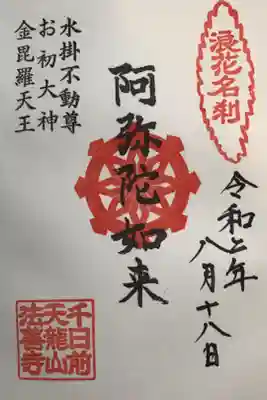 浪花名刹
令和七年
八月十八日
阿弥陀如来
水掛不動尊
お初大神
金毘羅天王
千日前
天龍山
法善寺